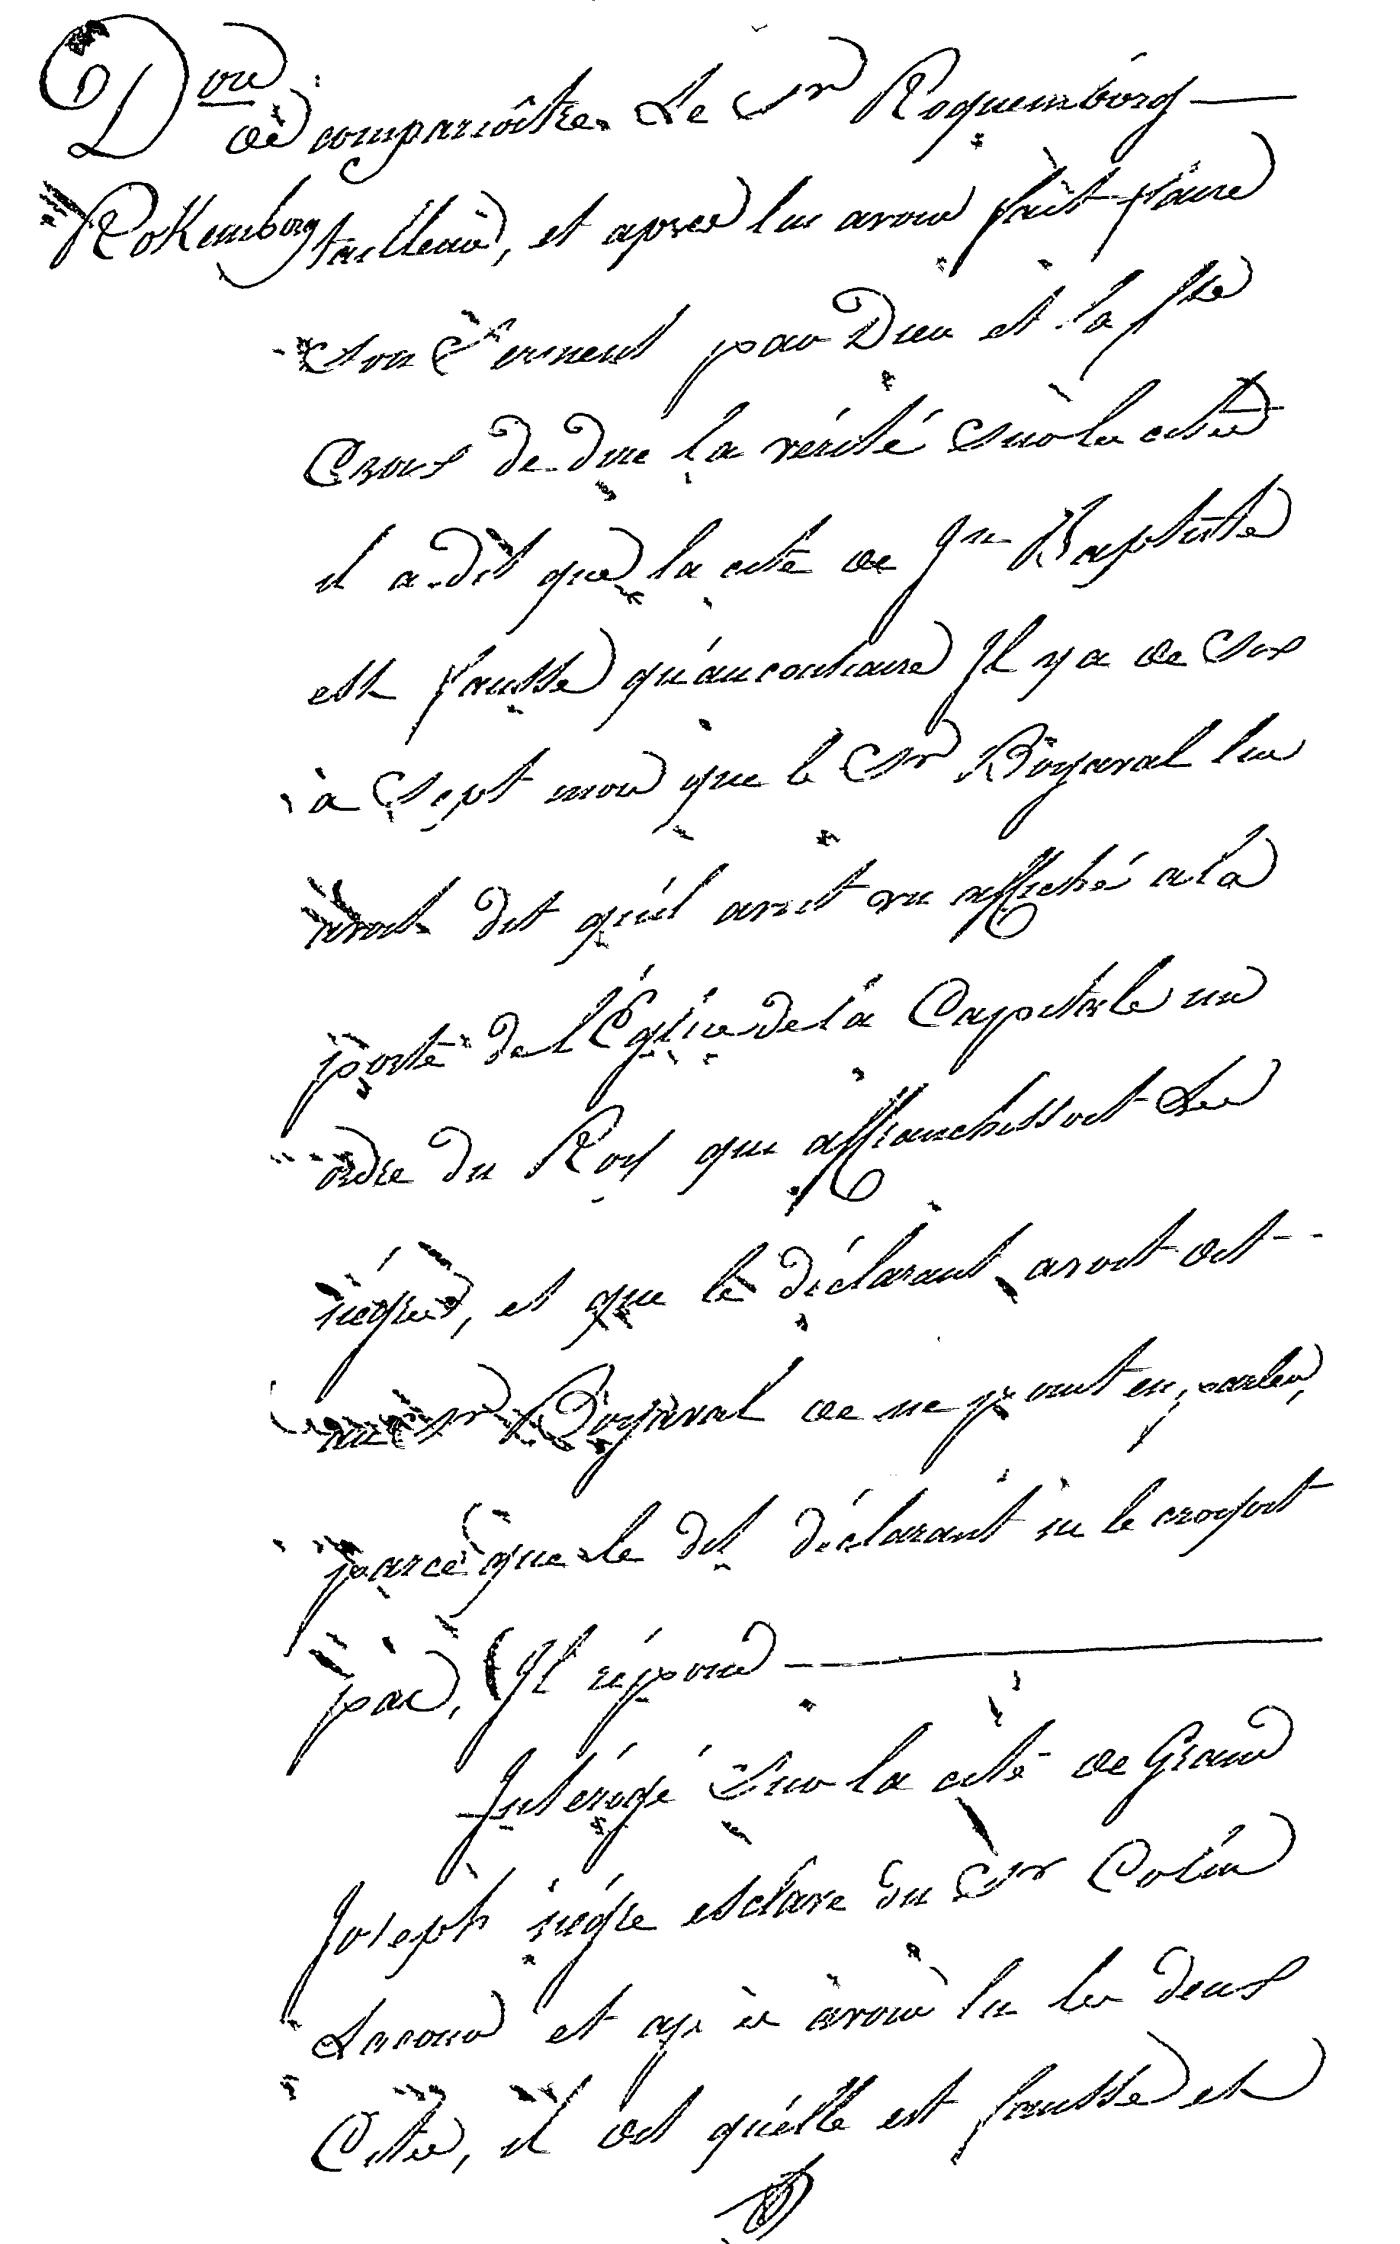 Don
de comparoître Le Sr Roquemborg —
Rokemborg
tailleur, et après lui avoir fait faire
son Serment par Dieu et la Ste
Croix de dire la vérité sur la citée
il a dit que la cité de Jn Baptiste
est fausse qu'au contraire Il y a de six
à Sept mois que le Sr Boyaval lui
avoit dit qu'il avoit vu affiché a la
porte de l'Église de la Capitale un
ordre du Roy qui affranchissoit Les
négres, et que le déclarant avoit dit
au Sr Boyaval de ne point en parler,
parce que le dit déclarant ne le croyoit
pas, Il répond —
Intérogé sur la cité de Grand
Joseph négre esclave du Sr Colin
Lacour et après avoir lu les deux
Citée, il dit qu'elle est fausse et